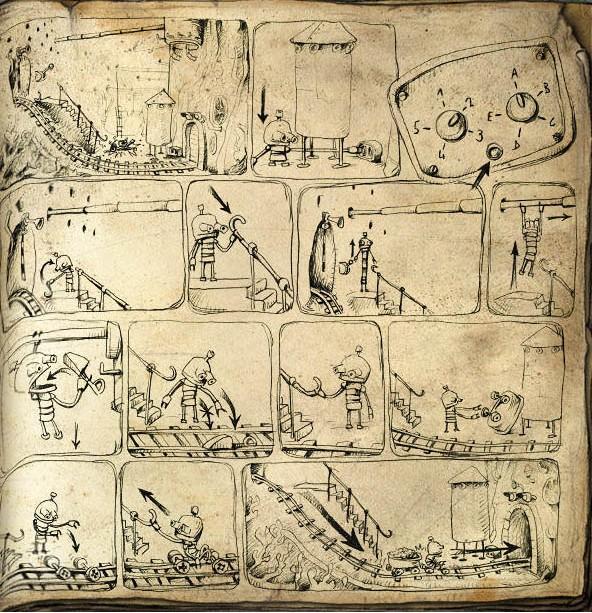 1
2
3
4
5
A
B
C
D
E